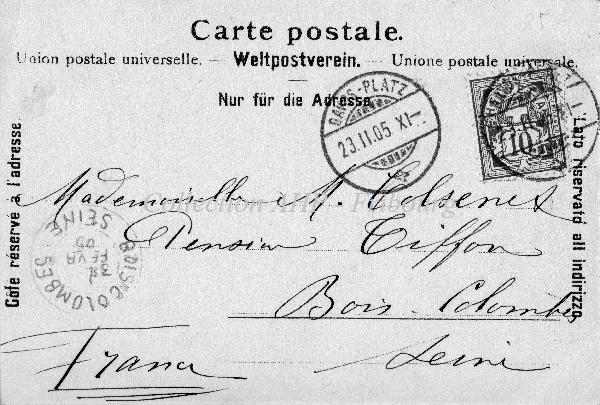 Carte postale.
Union postale universelle. — Weltpostverein. — Unione postale universale.
Nur für die Adresse.
DAVOS-PLATZ
23.II.05 XI–
10
Côté réservé à l'adresse.
Lato riservato all indirizzo.
Mademoiselle M.
Pension Tiffon
Bois-Colombes
Seine
France
BOIS COLOMBES
SEINE
FEVR
05
Collection AHP - Fribourg